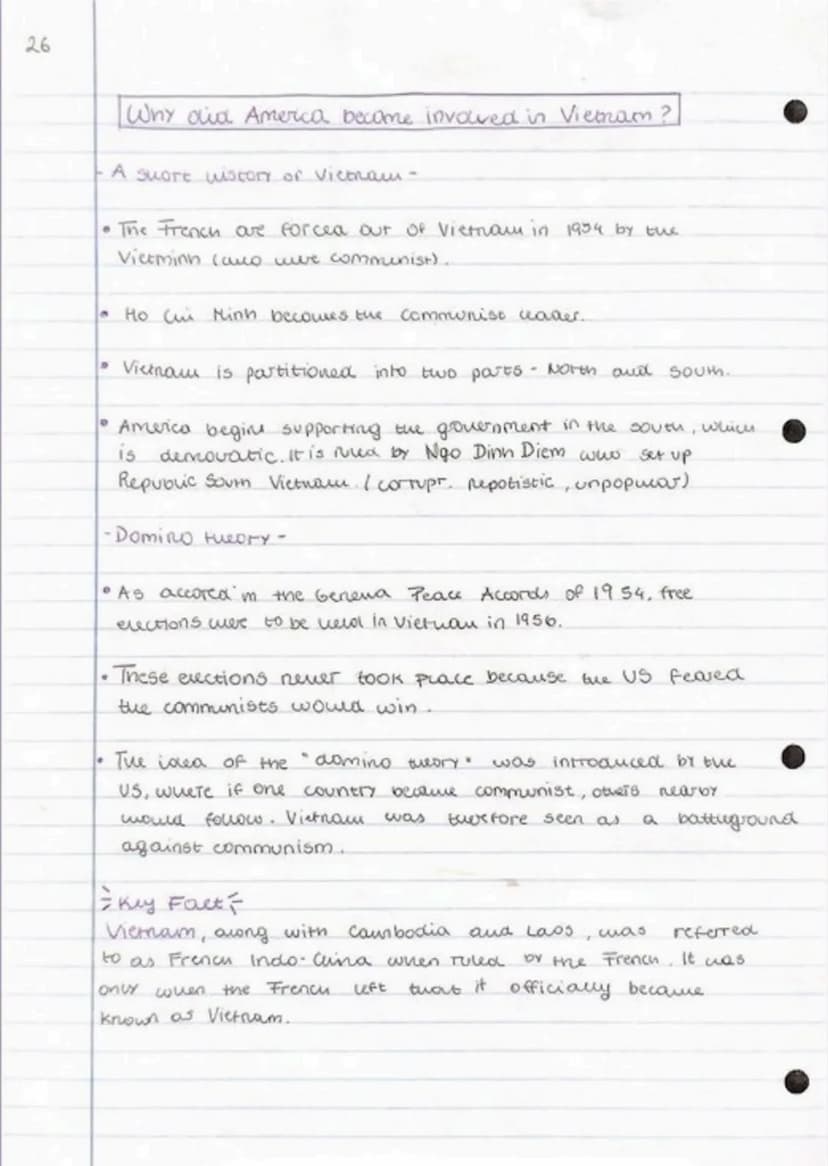 26
Why did America become involved in Vietnam?
- A short history of Vietnam -
• The French are forced out of Vietnam in 1954 by the
Vietminh (who were communist).
• Ho Chi Minh becomes the communist leader.
• Vietnam is partitioned into two parts - North and South.
• America begins supporting the government in the south, which
is democratic. It is ruled by Ngo Dinh Diem who set up
Republic South Vietnam. (corrupt, nepotistic, unpopular)
- Domino theory -
• As accored in the Geneva Peace Accords of 1954, free
elections were to be held in Vietnam in 1956.
• These elections never took place because the US feared
the communists would win.
• The idea of the "domino theory" was introduced by the
US, where if one country became communist, others nearby
would follow. Vietnam was therefore seen as a battleground
against communism.
Key Fact
Vietnam, along with Cambodia and Laos, was referred
to as French Indo-China when ruled by the French. It was
only when the French left that it officially became
known as Vietnam.